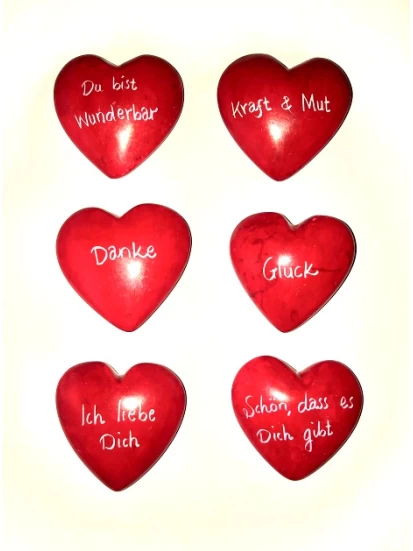 Du bist
Wunderbar
Kraft & Mut
Danke
Glück
Ich liebe
Dich
Schön, dass es
Dich gibt